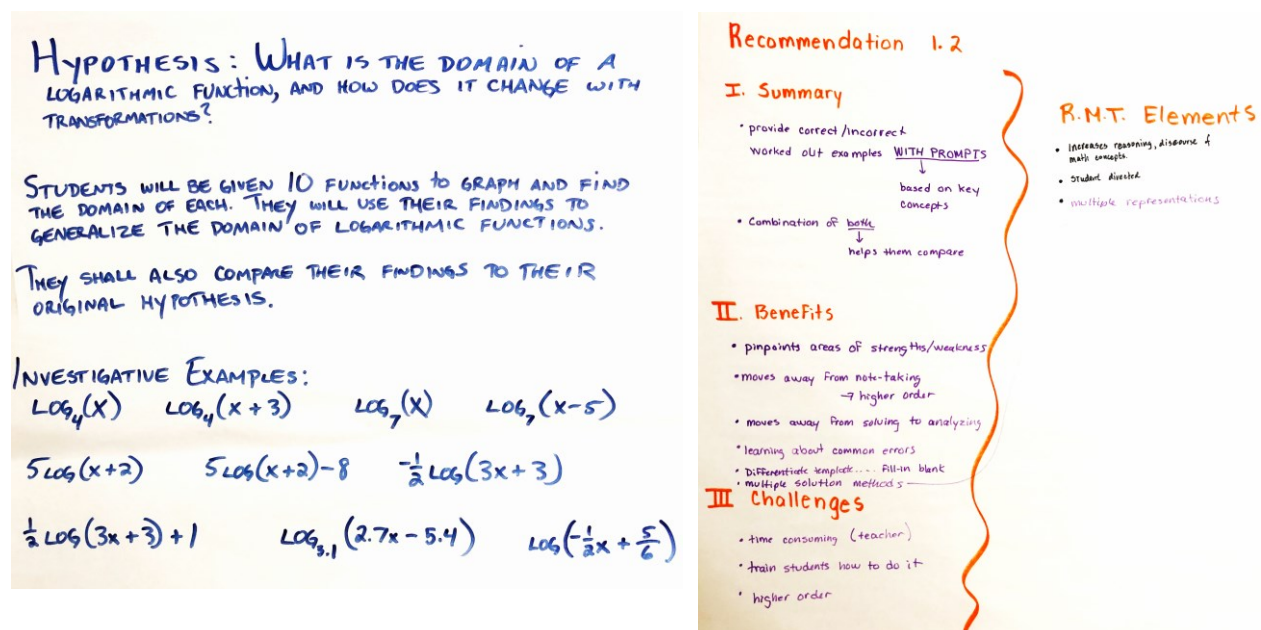 HYPOTHESIS: WHAT IS THE DOMAIN OF A
LOGARITHMIC FUNCTION, AND HOW DOES IT CHANGE WITH
TRANSFORMATIONS?
STUDENTS WILL BE GIVEN 10 FUNCTIONS TO GRAPH AND FIND
THE DOMAIN OF EACH. THEY WILL USE THEIR FINDINGS TO
GENERALIZE THE DOMAIN OF LOGARITHMIC FUNCTIONS.
THEY SHALL ALSO COMPARE THEIR FINDINGS TO THEIR
ORIGINAL HYPOTHESIS.
INVESTIGATIVE EXAMPLES:
LOG₄(X) LOG₄(X+3) LOG₇(X) LOG₇(X-5)
5LOG(X+2) 5LOG(X+2)-8 -1/2 LOG(3X+3)
1/2 LOG(3X+3)+1 LOG₃.₁(2.7X-5.4) LOG(-1/2X + 5/6)
Recommendation 1.2
I. Summary
• provide correct/incorrect
worked out examples WITH PROMPTS
↓
based on key
concepts
• Combination of both
↓
helps them compare
II. Benefits
• pinpoints areas of strengths/weakness
• moves away from note-taking
→ higher order
• moves away from solving to analyzing
• learning about common errors
• Differentiate template.... fill-in blank
• multiple solution methods
III Challenges
• time consuming (teacher)
• train students how to do it
• higher order
R.M.T. Elements
• Increases reasoning, discourse &
math concepts.
• Student directed
• multiple representations